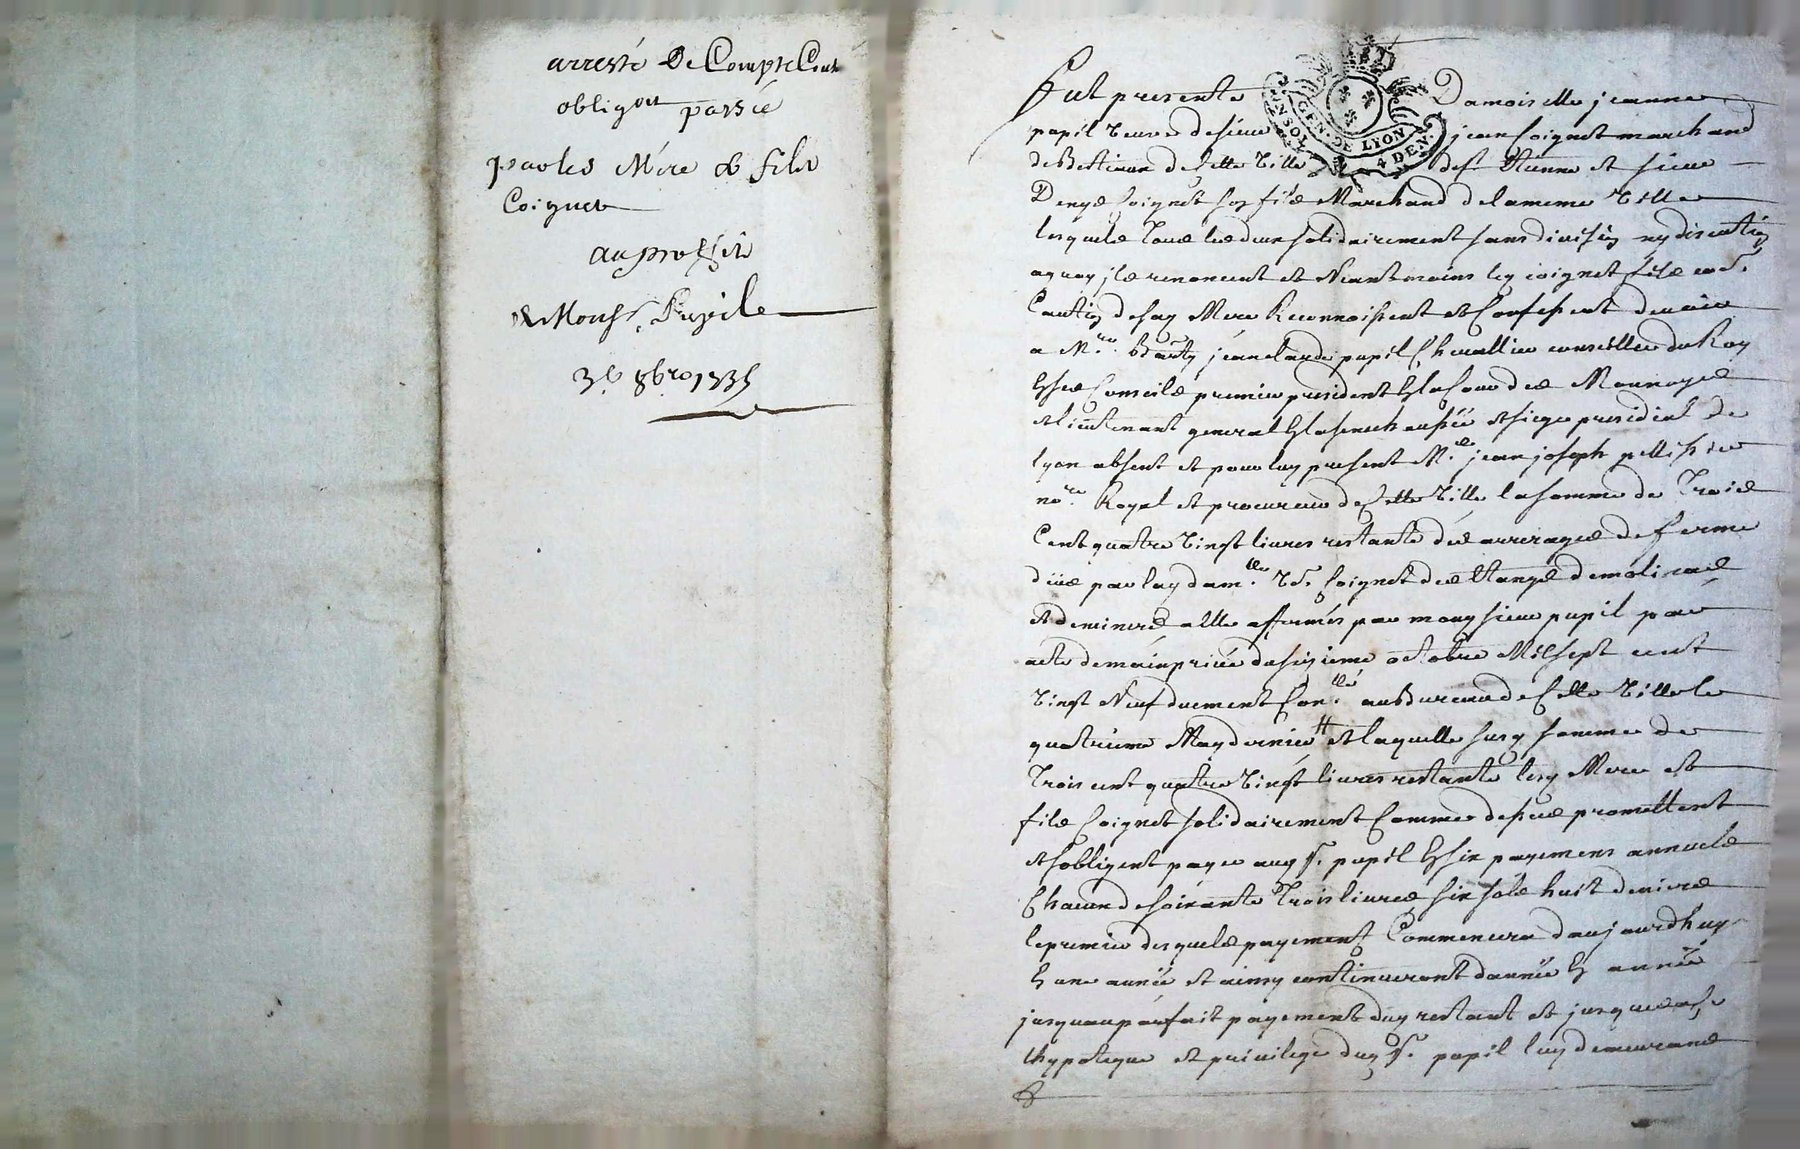 arresté De Compte Cont
obligon passée
par les Mére & fils
Coignet
au proffit
de Monsr. Pupile
3e. 8bre. 1735
Fut presente Damoiselle jeanne
pupil veuve de sieur jean Coignet marchand
de Bestiaux de cette ville de st. Etienne et sieur
Denys Coignet son fils Marchand de la meme ville
lesquels tous les deux solidairement sans division ny discution
a quoy jls renoncent et Neantmoins led coignet fils
Caution de sa Mere Reconnoissent et Confessent devoir
a Mre. jean claude pupil Chevallier conseiller du Roy
En ses Conseils premier president En la Cour des Monnoyes
et lieutenant general En la senechaussée et siege presidial de
lyon absent et pour luy present Me. jean joseph pellissier
nore. Royal et procureur de Cette ville la somme de Trois
Cent quatre vingt livres restante des arrerages de ferme
düe par lad damlle. ve. Coignet des Etangs de
et de a Elle affermés par mond sieur pupil par
acte de main privée du sixieme octobre Mil sept cent
vingt Neuf duement Conllé. au Bureau de Cette ville le
quatrieme May dernier # et laquelle susd somme de
Trois cent quatre vingt livres restante lesd Mere et
fils Coignet solidairement Comme dessus promettent
et s'obligent payer aud sr. pupil En six payemens annuels
Chacun de soixante Trois livres six sols huit deniers
le premier desquels payement Commencera d'aujourdhuy
En une année et ainsy continueront d'année En année
jusqu'au parfait payement dud restant et jusques a ce
lhypoteque et privilege dud sr. pupil luy demeurans
GEN. DE LYON
4 DEN.